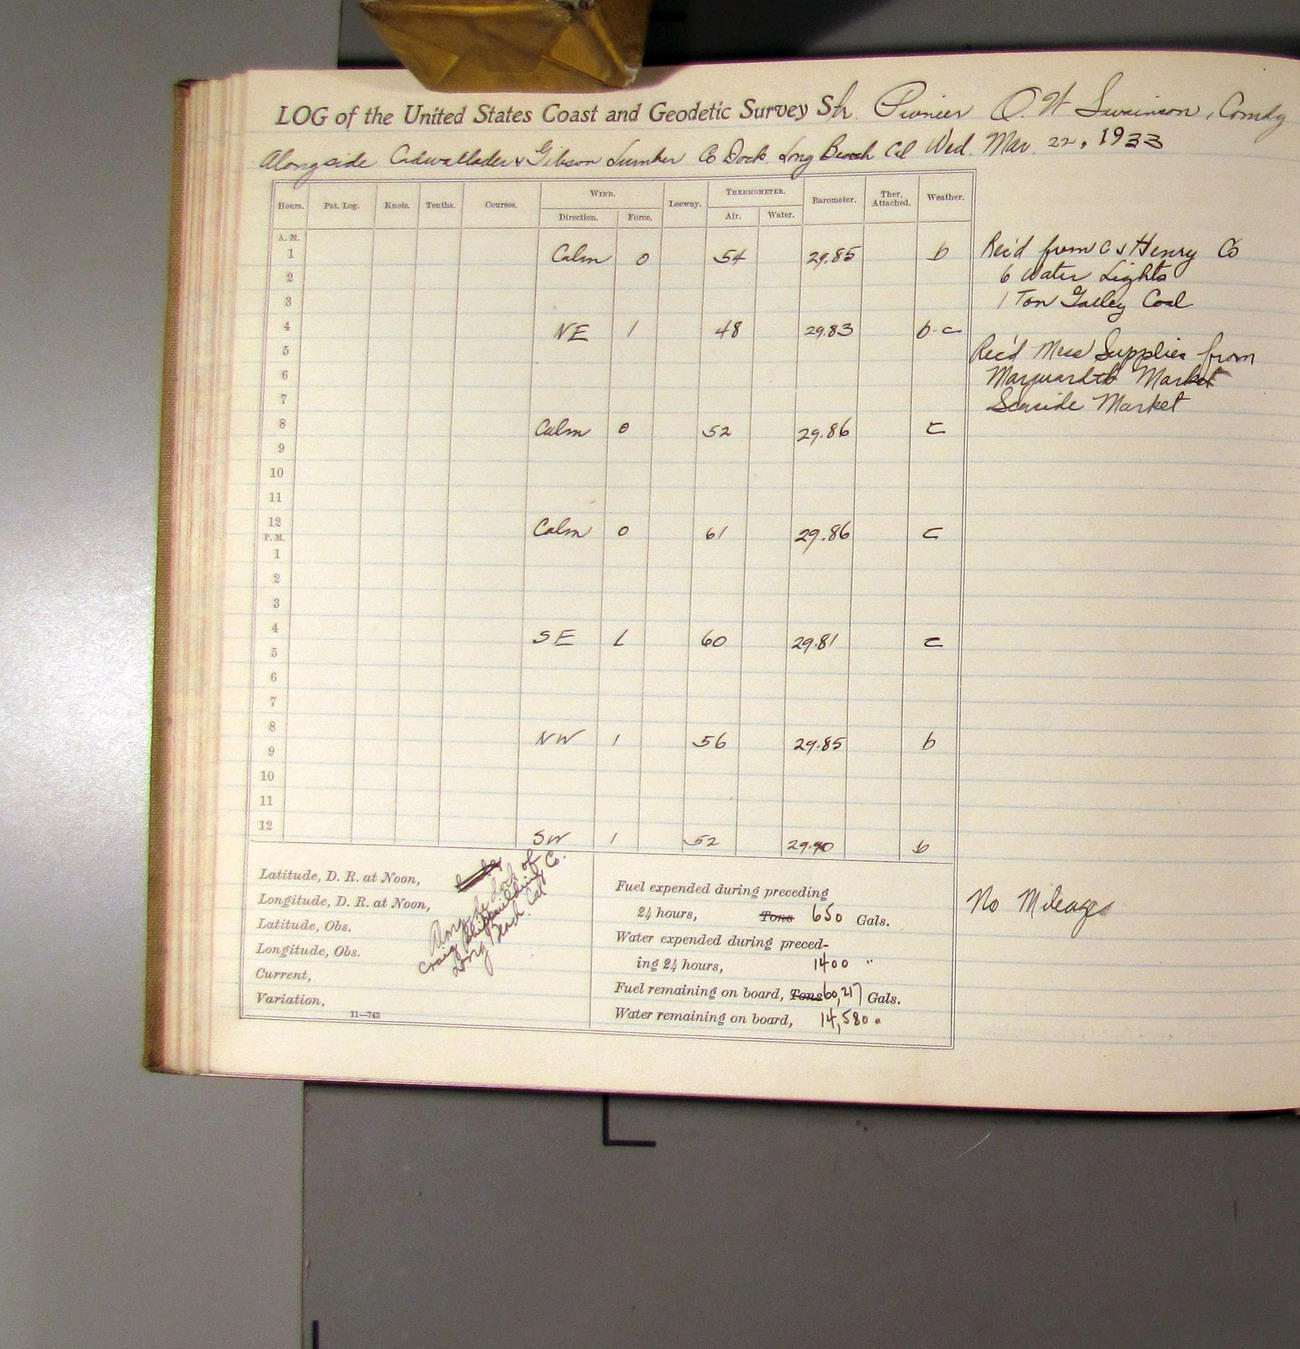 LOG of the United States Coast and Geodetic Survey Str. Pioneer O. W. Swainson, Comdg
Alongside Cadwallader & Gibson Lumber Co Dock Long Beach Cal Wed. Mar. 22, 1933
Hours. Pat. Log. Knots. Tenths. Courses. WIND. Leeway. THERMOMETER. Barometer. Ther. Attached. Weather.
Direction. Force. Air. Water.
A. M.
1 Calm 0 54 29.85 b Rec'd from C J Henry Co
2 6 Water Lights
3 1 Ton Galley Coal
4 NE 1 48 29.83 b-c
5 Rec'd Mess Supplies from
6 Marquardt Market
7 Seaside Market
8 Calm 0 52 29.86 c
9
10
11
12 Calm 0 61 29.86 c
P. M.
1
2
3
4 SE 1 60 29.81 c
5
6
7
8 NW 1 56 29.85 b
9
10
11
12 SW 1 52 29.90 b
Latitude, D. R. at Noon,
Longitude, D. R. at Noon,
Latitude, Obs.
Longitude, Obs.
Current,
Variation,
11—743
Alongside Dock of
Craig Shipbuilding Co.
Long Beach Cal
Fuel expended during preceding
24 hours, Tons 650 Gals.
Water expended during preced-
ing 24 hours, 1400 "
Fuel remaining on board, Tons 60,217 Gals.
Water remaining on board, 14,580 "
No Mileage